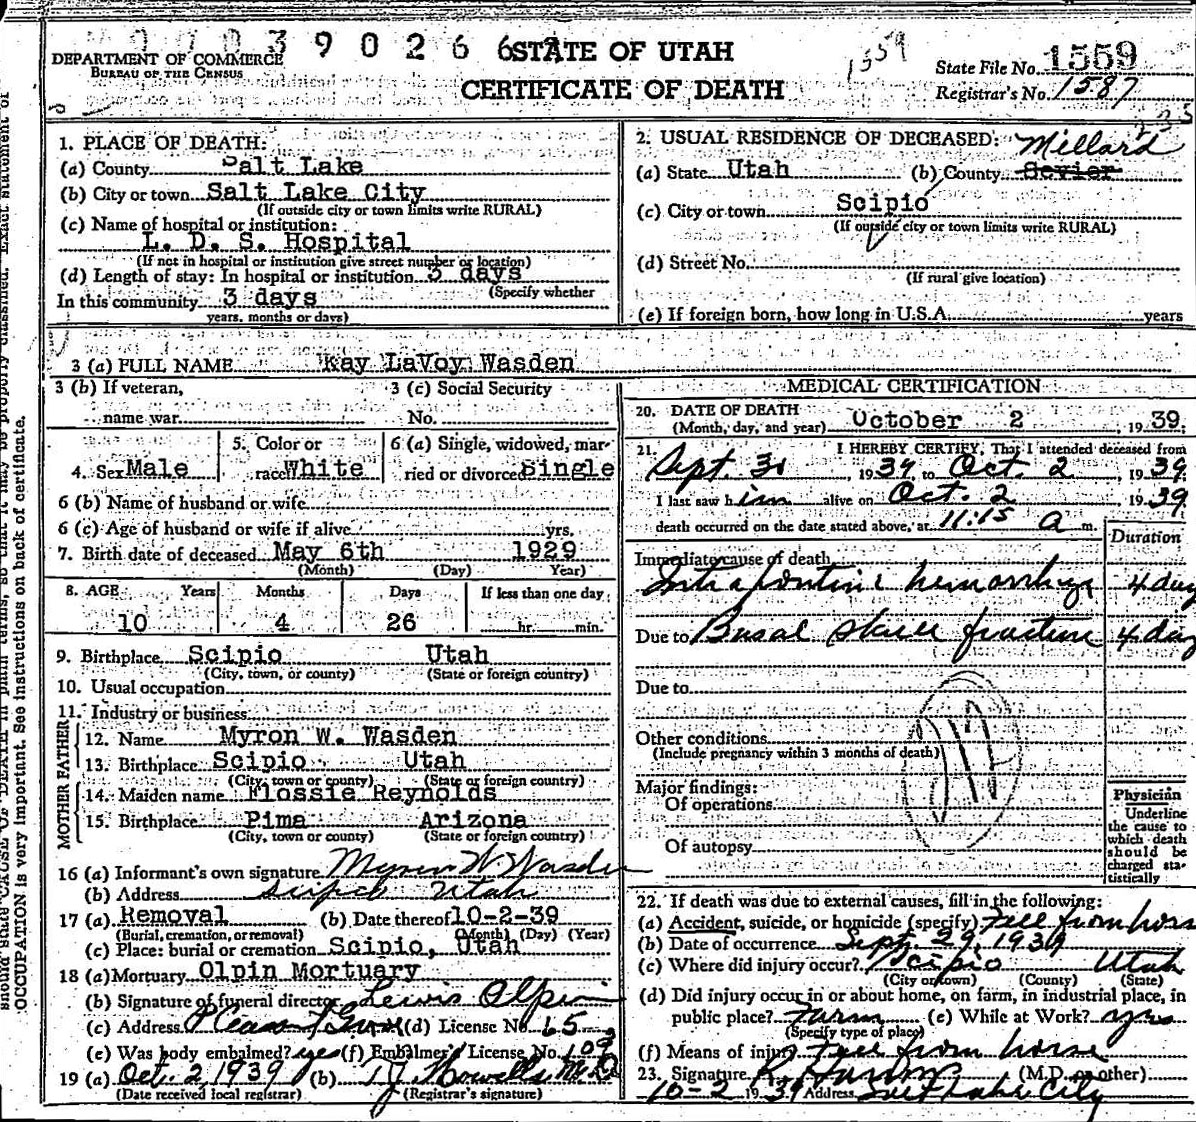 0 7 0 3 9 0 2 6 6 2
STATE OF UTAH
CERTIFICATE OF DEATH
DEPARTMENT OF COMMERCE
BUREAU OF THE CENSUS
1559
State File No. 1559
Registrar's No. 1587
235
1. PLACE OF DEATH:
(a) County Salt Lake
(b) City or town Salt Lake City
(If outside city or town limits write RURAL)
(c) Name of hospital or institution:
L. D. S. Hospital
(If not in hospital or institution give street number or location)
(d) Length of stay: In hospital or institution 3 days
(Specify whether
In this community 3 days
years, months or days)
2. USUAL RESIDENCE OF DECEASED: Millard
(a) State Utah (b) County Sevier
(c) City or town Scipio
(If outside city or town limits write RURAL)
(d) Street No.
(If rural give location)
(e) If foreign born, how long in U.S.A. years
3 (a) FULL NAME Kay LaVoy Wasden
3 (b) If veteran, 3 (c) Social Security
name war. No.
4. Sex Male 5. Color or race White 6 (a) Single, widowed, married or divorced Single
6 (b) Name of husband or wife
6 (c) Age of husband or wife if alive yrs.
7. Birth date of deceased May 6th 1929
(Month) (Day) Year)
8. AGE Years Months Days If less than one day
10 4 26 hr. min.
9. Birthplace Scipio Utah
(City, town, or county) (State or foreign country)
10. Usual occupation
11. Industry or business
FATHER
12. Name Myron W. Wasden
13. Birthplace Scipio Utah
(City, town or county) (State or foreign country)
MOTHER
14. Maiden name Flossie Reynolds
15. Birthplace Pima Arizona
(City, town or county) (State or foreign country)
16 (a) Informant's own signature Myron W Wasden
(b) Address Scipio Utah
17 (a) Removal (b) Date thereof 10-2-39
(Burial, cremation, or removal) (Month) (Day) (Year)
(c) Place: burial or cremation Scipio, Utah
18 (a) Mortuary Olpin Mortuary
(b) Signature of funeral director Lewis Olpin
(c) Address Pleasant Grove (d) License No. 65
(e) Was body embalmed? yes (f) Embalmer's License No. 109
19 (a) Oct. 2, 1939 (b) T J Howells M.D
(Date received local registrar) (Registrar's signature)
MEDICAL CERTIFICATION
20. DATE OF DEATH
(Month, day, and year) October 2, 1939.
21. I HEREBY CERTIFY, That I attended deceased from
Sept. 30, 1939, to Oct. 2, 1939
I last saw him alive on Oct. 2, 1939
death occurred on the date stated above, at 11:15 a m.
Duration
Immediate cause of death
Intrapontine hemorrhage 4 day
Due to Basal skull fracture 4 day
Due to
Other conditions
(Include pregnancy within 3 months of death)
Major findings:
Of operations
Of autopsy
Physician
Underline
the cause to
which death
should be
charged sta-
tistically
22. If death was due to external causes, fill in the following:
(a) Accident, suicide, or homicide (specify) Fell from hors
(b) Date of occurrence Sept. 29, 1939
(c) Where did injury occur? Scipio Utah
(City or town) (County) (State)
(d) Did injury occur in or about home, on farm, in industrial place, in
public place? Farm (e) While at Work? yes
(Specify type of place)
(f) Means of injury Fell from horse
23. Signature (M.D. or other)
10-2 1939 Address Salt Lake City
OCCUPATION is very important. See instructions on back of certificate.